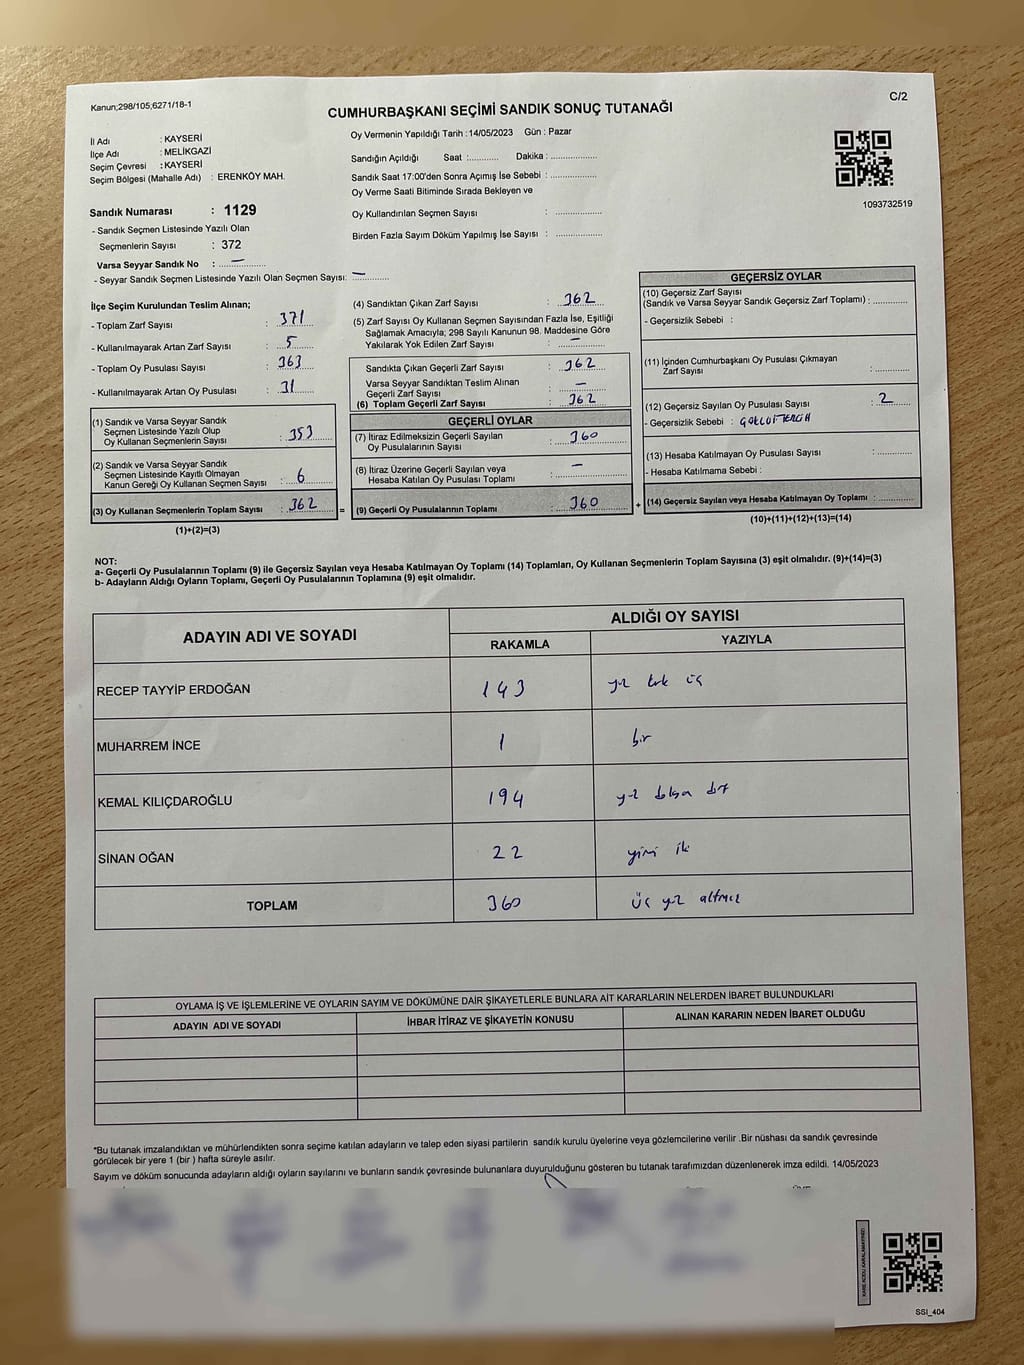 Kanun;298/105;6271/18-1
C/2
CUMHURBAŞKANI SEÇİMİ SANDIK SONUÇ TUTANAĞI
İl Adı : KAYSERİ
İlçe Adı : MELİKGAZİ
Seçim Çevresi : KAYSERİ
Seçim Bölgesi (Mahalle Adı) : ERENKÖY MAH.
Oy Vermenin Yapıldığı Tarih :14/05/2023 Gün : Pazar
Sandığın Açıldığı Saat :........... Dakika :.................
Sandık Saat 17:00'den Sonra Açımış İse Sebebi :.................
Oy Verme Saati Bitiminde Sırada Bekleyen ve
Oy Kullandırılan Seçmen Sayısı :.................
Birden Fazla Sayım Döküm Yapılmış İse Sayısı :.................
1093732519
Sandık Numarası : 1129
- Sandık Seçmen Listesinde Yazılı Olan
Seçmenlerin Sayısı : 372
Varsa Seyyar Sandık No : —
- Seyyar Sandık Seçmen Listesinde Yazılı Olan Seçmen Sayısı: —
İlçe Seçim Kurulundan Teslim Alınan;
- Toplam Zarf Sayısı : 371
- Kullanılmayarak Artan Zarf Sayısı : 5
- Toplam Oy Pusulası Sayısı : 363
- Kullanılmayarak Artan Oy Pusulası : 31
(1) Sandık ve Varsa Seyyar Sandık
Seçmen Listesinde Yazılı Olup
Oy Kullanan Seçmenlerin Sayısı : 353
(2) Sandık ve Varsa Seyyar Sandık
Seçmen Listesinde Kayıtlı Olmayan
Kanun Gereği Oy Kullanan Seçmen Sayısı : 6
(3) Oy Kullanan Seçmenlerin Toplam Sayısı : 362 =
(1)+(2)=(3)
(4) Sandıktan Çıkan Zarf Sayısı : 362
(5) Zarf Sayısı Oy Kullanan Seçmen Sayısından Fazla İse, Eşitliği
Sağlamak Amacıyla; 298 Sayılı Kanunun 98. Maddesine Göre
Yakılarak Yok Edilen Zarf Sayısı : —
Sandıkta Çıkan Geçerli Zarf Sayısı : 362
Varsa Seyyar Sandıktan Teslim Alınan
Geçerli Zarf Sayısı : —
(6) Toplam Geçerli Zarf Sayısı : 362
GEÇERLİ OYLAR
(7) İtiraz Edilmeksizin Geçerli Sayılan
Oy Pusulalarının Sayısı : 360
(8) İtiraz Üzerine Geçerli Sayılan veya
Hesaba Katılan Oy Pusulası Toplamı : —
(9) Geçerli Oy Pusulalarının Toplamı : 360 +
GEÇERSİZ OYLAR
(10) Geçersiz Zarf Sayısı
(Sandık ve Varsa Seyyar Sandık Geçersiz Zarf Toplamı) :...........
- Geçersizlik Sebebi :
(11) İçinden Cumhurbaşkanı Oy Pusulası Çıkmayan
Zarf Sayısı :...........
(12) Geçersiz Sayılan Oy Pusulası Sayısı : 2
- Geçersizlik Sebebi :
(13) Hesaba Katılmayan Oy Pusulası Sayısı :...........
- Hesaba Katılmama Sebebi :
(14) Geçersiz Sayılan veya Hesaba Katılmayan Oy Toplamı :...........
(10)+(11)+(12)+(13)=(14)
NOT:
a- Geçerli Oy Pusulalarının Toplamı (9) ile Geçersiz Sayılan veya Hesaba Katılmayan Oy Toplamı (14) Toplamları, Oy Kullanan Seçmenlerin Toplam Sayısına (3) eşit olmalıdır. (9)+(14)=(3)
b- Adayların Aldığı Oyların Toplamı, Geçerli Oy Pusulalarının Toplamına (9) eşit olmalıdır.
ADAYIN ADI VE SOYADI
ALDIĞI OY SAYISI
RAKAMLA YAZIYLA
RECEP TAYYİP ERDOĞAN 143 yüz kırk üç
MUHARREM İNCE 1 bir
KEMAL KILIÇDAROĞLU 194 yüz doksan dört
SİNAN OĞAN 22 yirmi iki
TOPLAM 360 üç yüz altmış
OYLAMA İŞ VE İŞLEMLERİNE VE OYLARIN SAYIM VE DÖKÜMÜNE DAİR ŞİKAYETLERLE BUNLARA AİT KARARLARIN NELERDEN İBARET BULUNDUKLARI
ADAYIN ADI VE SOYADI İHBAR İTİRAZ VE ŞİKAYETİN KONUSU ALINAN KARARIN NEDEN İBARET OLDUĞU
*Bu tutanak imzalandıktan ve mühürlendikten sonra seçime katılan adayların ve talep eden siyasi partilerin sandık kurulu üyelerine veya gözlemcilerine verilir .Bir nüshası da sandık çevresinde
görülecek bir yere 1 (bir ) hafta süreyle asılır.
Sayım ve döküm sonucunda adayların aldığı oyların sayılarını ve bunların sandık çevresinde bulunanlara duyurulduğunu gösteren bu tutanak tarafımızdan düzenlenerek imza edildi. 14/05/2023
KARE KODU KARALAMAYINIZ!
SSI_404